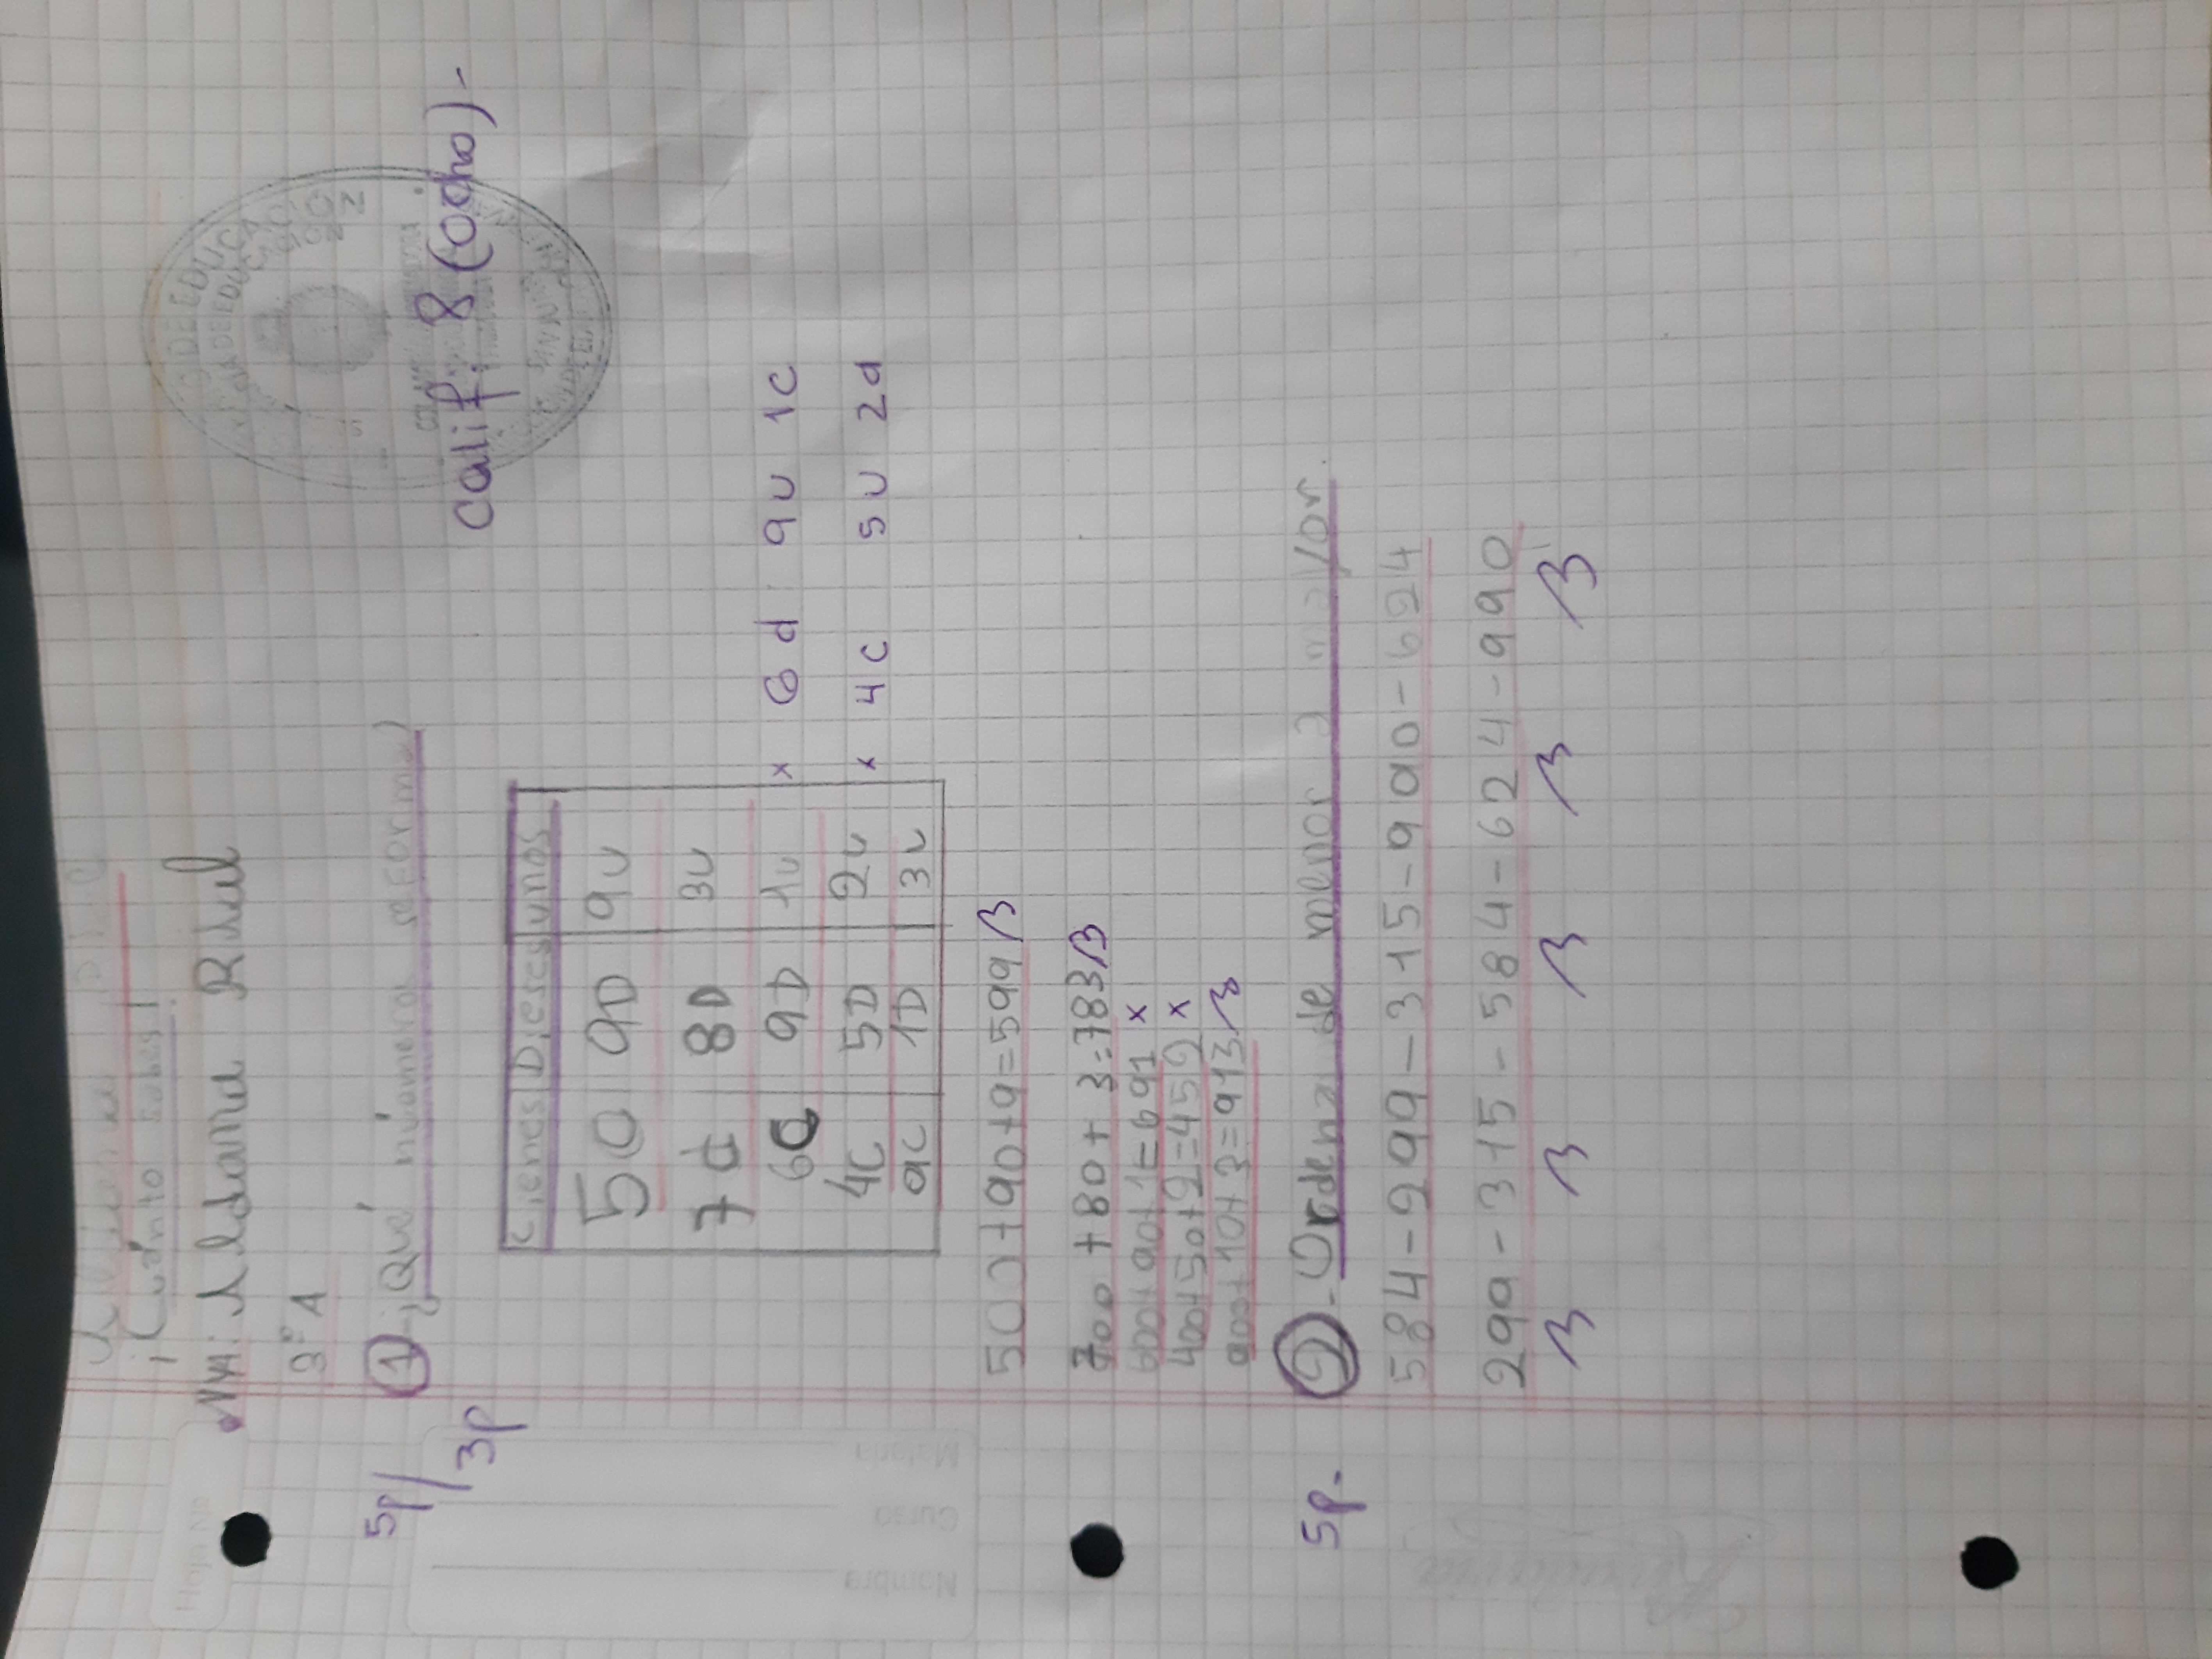 ¡Cuánto sabes!
Milldame Rihul
3º A
5p/3p
① ¿Qué números se forma?
Calif: 8 (ocho)-
Cienes Dieses unos
5C 9D 9U
7C 8D 3U
6C 9D 1U x 6d 9U 1C
4C 5D 2U x 4C 5U 2d
9C 1D 3U
500+90+9=599 B
700+80+3=783 B
600+90+1=691 x
400+50+2=452 x
900+10+3=913 B
5p-
②-Ordena de menor a mayor.
584-299-315-990-624
299-315-584-624-990
B B B B B
Nombre
Curso
Materia
Hoja Nº
Rivadavia